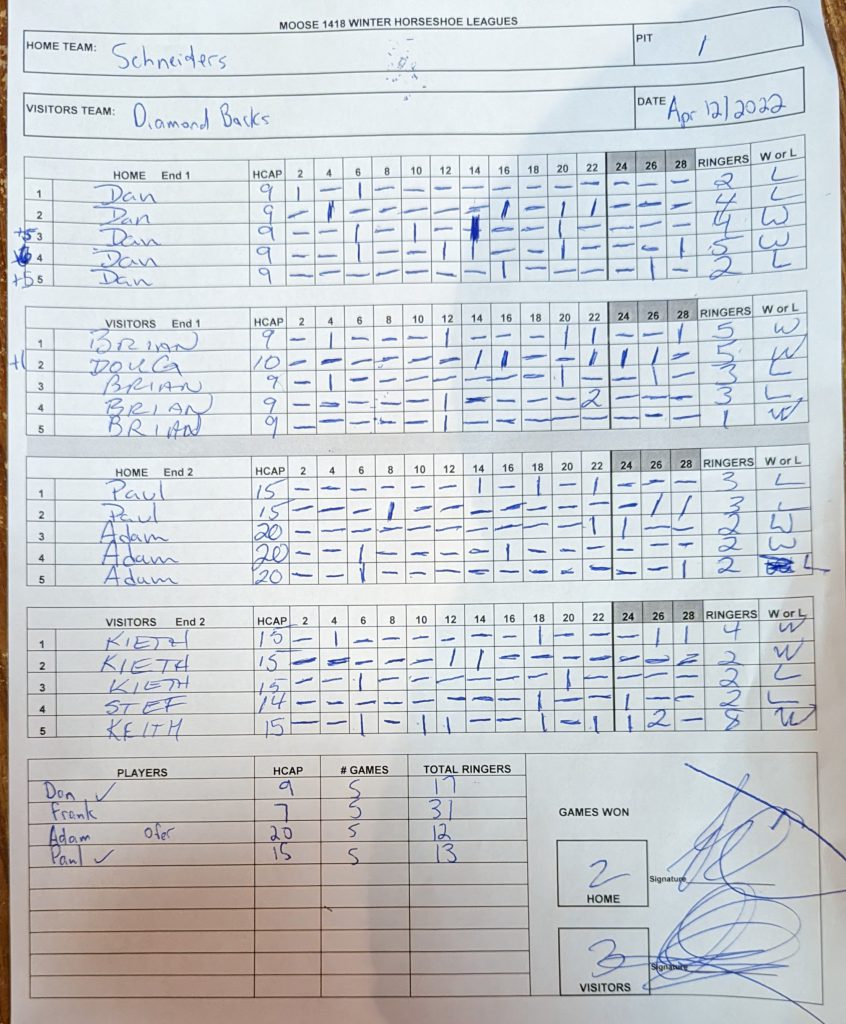 MOOSE 1418 WINTER HORSESHOE LEAGUES
HOME TEAM: Schneiders PIT 1
VISITORS TEAM: Diamond Backs DATE Apr 12/2022
HOME End 1 HCAP 2 4 6 8 10 12 14 16 18 20 22 24 26 28 RINGERS W or L
1 Dan 9 1 - 1 - - - - - - - - - - - 2 L
2 Dan 9 - 1 - - - - - 1 - 1 1 - - - 4 L
+5 3 Dan 9 - - 1 - 1 - 1 - - 1 - - - - 4 W
4 Dan 9 - - 1 - - 1 1 - - 1 - - - 1 5 W
+5 5 Dan 9 - - - - - - - 1 - - - - 1 - 2 L
VISITORS End 1 HCAP 2 4 6 8 10 12 14 16 18 20 22 24 26 28 RINGERS W or L
1 BRIAN 9 - 1 - - - 1 - - - 1 1 - - 1 5 W
+1 2 DOUG 10 - - - - - - 1 1 - - 1 1 1 - 5 W
3 BRIAN 9 - 1 - - - - - - - 1 - - 1 - 3 L
4 BRIAN 9 - - - - - 1 - - - - 2 - - - 3 L
5 BRIAN 9 - - - - - 1 - - - - - - - - 1 W
HOME End 2 HCAP 2 4 6 8 10 12 14 16 18 20 22 24 26 28 RINGERS W or L
1 Paul 15 - - - - - - 1 - 1 - 1 - - - 3 L
2 Paul 15 - - - 1 - - - - - - - - 1 1 3 L
3 Adam 20 - - - - - - - - - - 1 1 - - 2 W
4 Adam 20 - - 1 - - - - 1 - - - - - - 2 W
5 Adam 20 - - 1 - - - - - - - - - - 1 2 L
VISITORS End 2 HCAP 2 4 6 8 10 12 14 16 18 20 22 24 26 28 RINGERS W or L
1 KIETH 15 - 1 - - - - - - 1 - - - 1 1 4 W
2 KIETH 15 - - - - - 1 1 - - - - - - - 2 W
3 KIETH 15 - - 1 - - - - - - 1 - - - - 2 L
4 STEF 14 - - - - - - - - 1 - - 1 - - 2 L
5 KEITH 15 - - 1 - 1 1 - - 1 - 1 1 2 - 8 W
PLAYERS HCAP # GAMES TOTAL RINGERS
Dan ✓ 9 5 17
Frank 7 5 31
Adam Ofer 20 5 12
Paul ✓ 15 5 13
GAMES WON
2 Signature
HOME
3 Signature
VISITORS